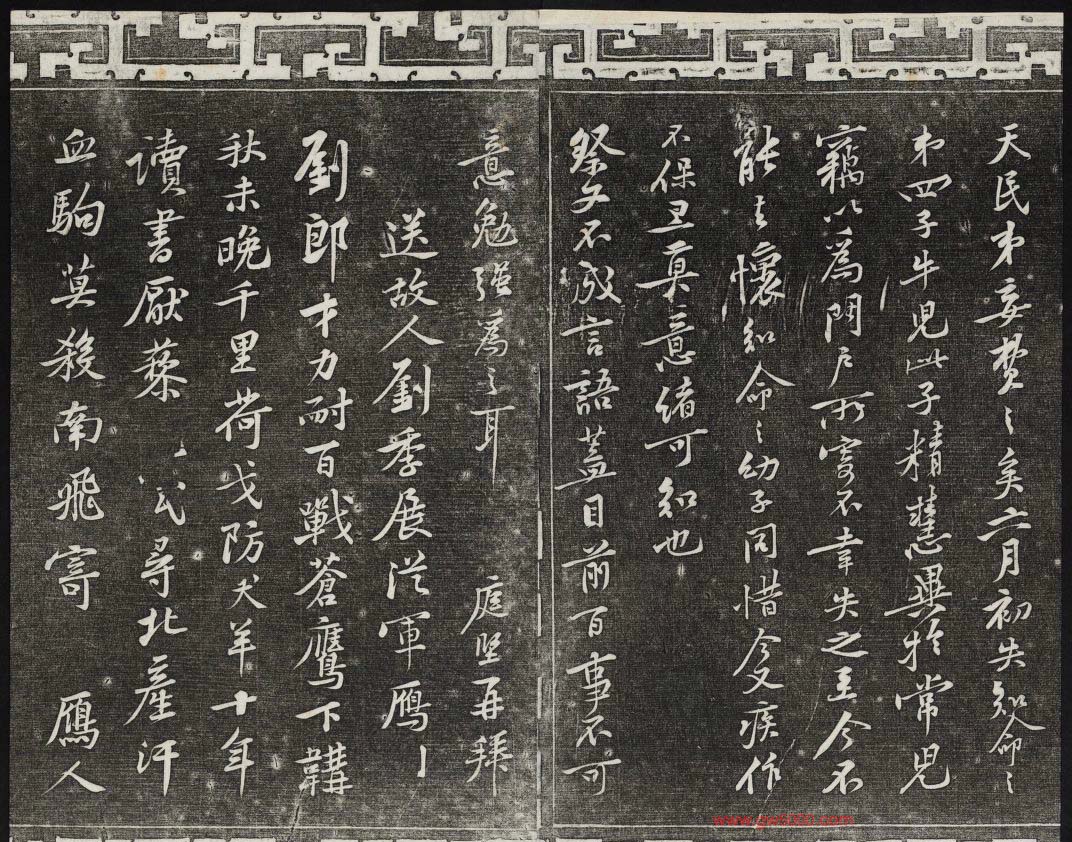 天民弟妾費〻矣六月初失知命〻
弟四子牛児此子精慧異於常児
竊以為門戶所寄不幸失之至今不
能去懷知命〻幼子同惜今又疾作
不保丑真意緒可知也
祭文不成言語蓋目前百事不可
意勉強為之耳 庭堅再拜
送故人劉季展從軍鴈
劉郎才力耐百戰蒼鷹下韝
秋未晚千里荷戈防犬羊十年
讀書厭藜 尋北產汗
血駒莫殺南飛寄 鴈人
www.gw5000.com